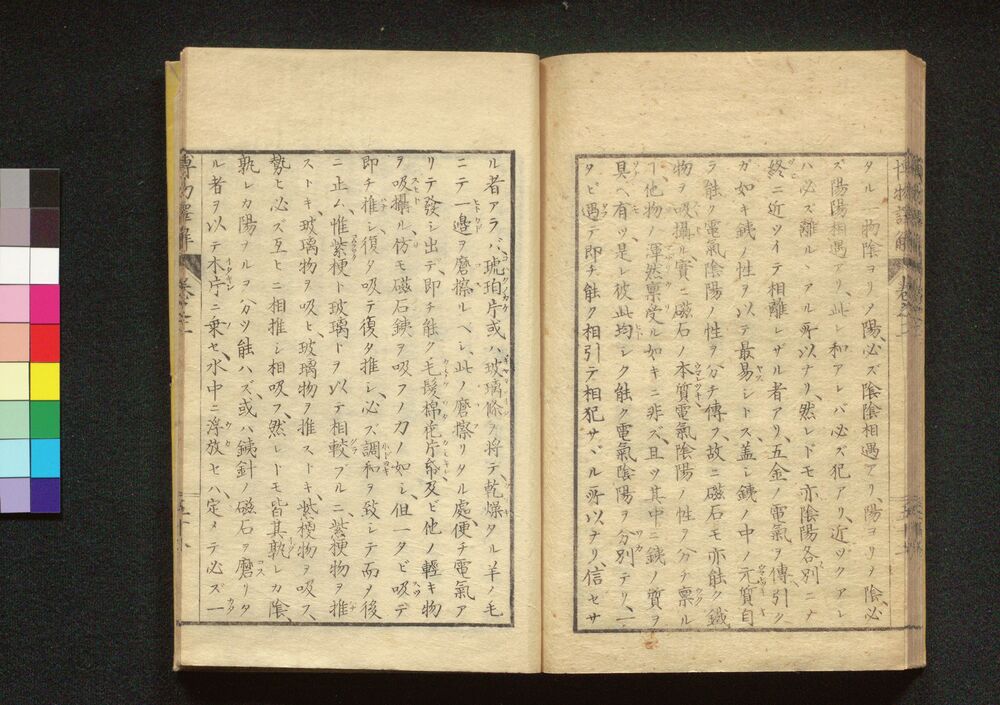 タル一物陰ヨリノ陽、必ズ陰陰相遇アリ、陽ヨリノ陰必
ズ陽陽相遇アリ、此レ和アレバ必ズ犯アリ、近ヅクアレ
ハ必ズ離ルヽアル所以ナリ、然レドモ亦陰陽各別ニナ
終ニ近ツイテ相離レザル者アリ、五金ノ電氣ヲ傳引ク
ガ如キ鐵ノ性ヲ以テ最易シトス、蓋シ鐵ノ中ノ元質自
ラ能ク電氣陰陽ノ性ヲ分チ傳フ、故ニ磁石モ亦能ク鐵
物ヲ吸攝ル、實ニ磁石ノ本質電氣陰陽ノ性ヲ分チ禀ル
丁、他物ノ渾然禀受ル如キニ非ズ、且ツ其中ニ鐵ノ質ヲ
具ヘ有ツ、是レ彼此均シク能ク電氣陰陽ヲ分別テリ、一
タビ遇テ即チ能ク相引テ相犯サヾル所以ナリ、信セサ
ル者アラバ、琥珀片或ハ玻璃條ヲ將テ、乾燥タル羊ノ毛
ニテ一邊ヲ磨擦ルベシ、此ノ磨擦リタル處、便チ電氣ア
リテ發シ出デ、即チ能ク毛髮棉花片紙及ビ他ノ輕キ物
ヲ吸攝ル、仿モ磁石鐵ヲ吸フノ力ノ如シ、但一タビ吸テ
即チ推シ、復タ吸テ復タ推シ、必ス調和ヲ致シテ而ヲ後
ニ止ム、惟紫梗ト玻璃トヲ以テ相較ブルニ、紫梗物ヲ推
ストキ玻璃物ヲ吸ヒ、玻璃物ヲ推ストキ紫梗物ヲ吸フ、
勢ヒ必ズ互ヒニ相推シ相吸フ、然レドモ皆其孰レカ陰、
孰レカ陽ヲルヲ分ツ能ハズ、或ハ鐵針ノ磁石ヲ磨リタ
ル者ヲ以テ木片ニ乗セ、水中ニ浮放セハ、定メテ必ズ一
博物譯解
卷之二